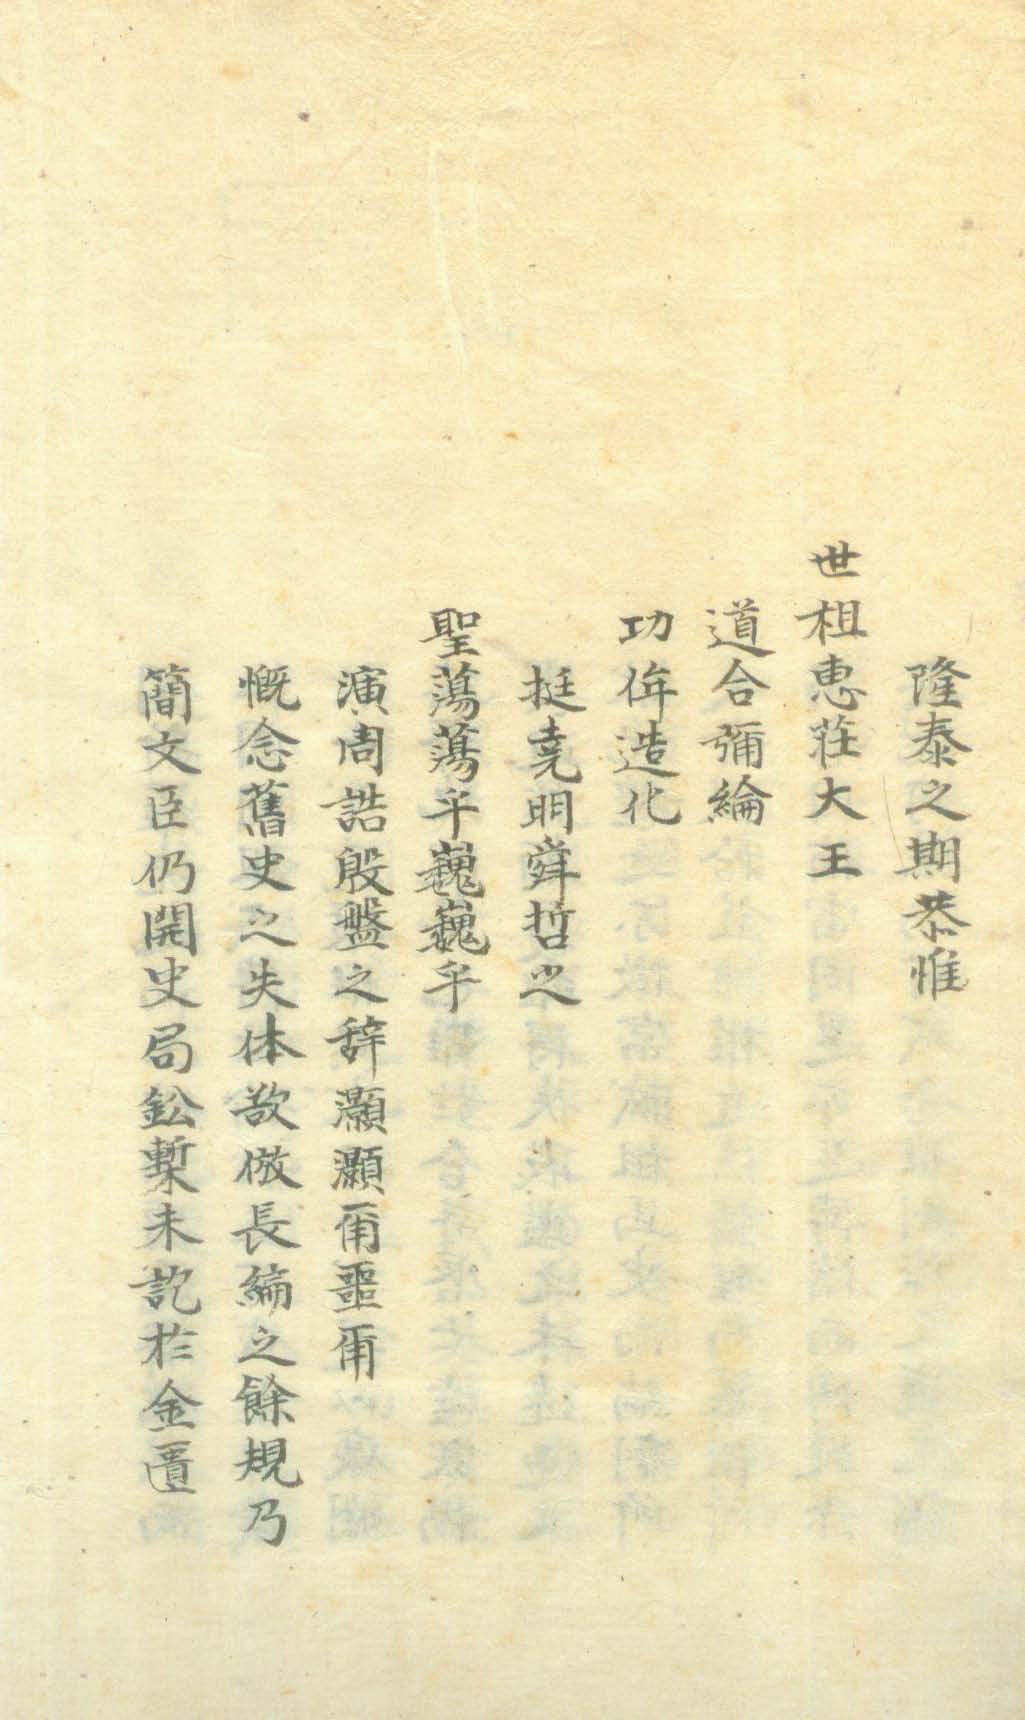 隆泰之期恭惟
世祖惠莊大王
道合彌綸
功侔造化
挺堯明舜哲之
聖蕩蕩乎巍巍乎
演周誥殷盤之辞灝灝爾噩爾
慨念舊史之失体欲倣長編之餘規乃
簡文臣仍開史局鈆槧未訖扵金匱